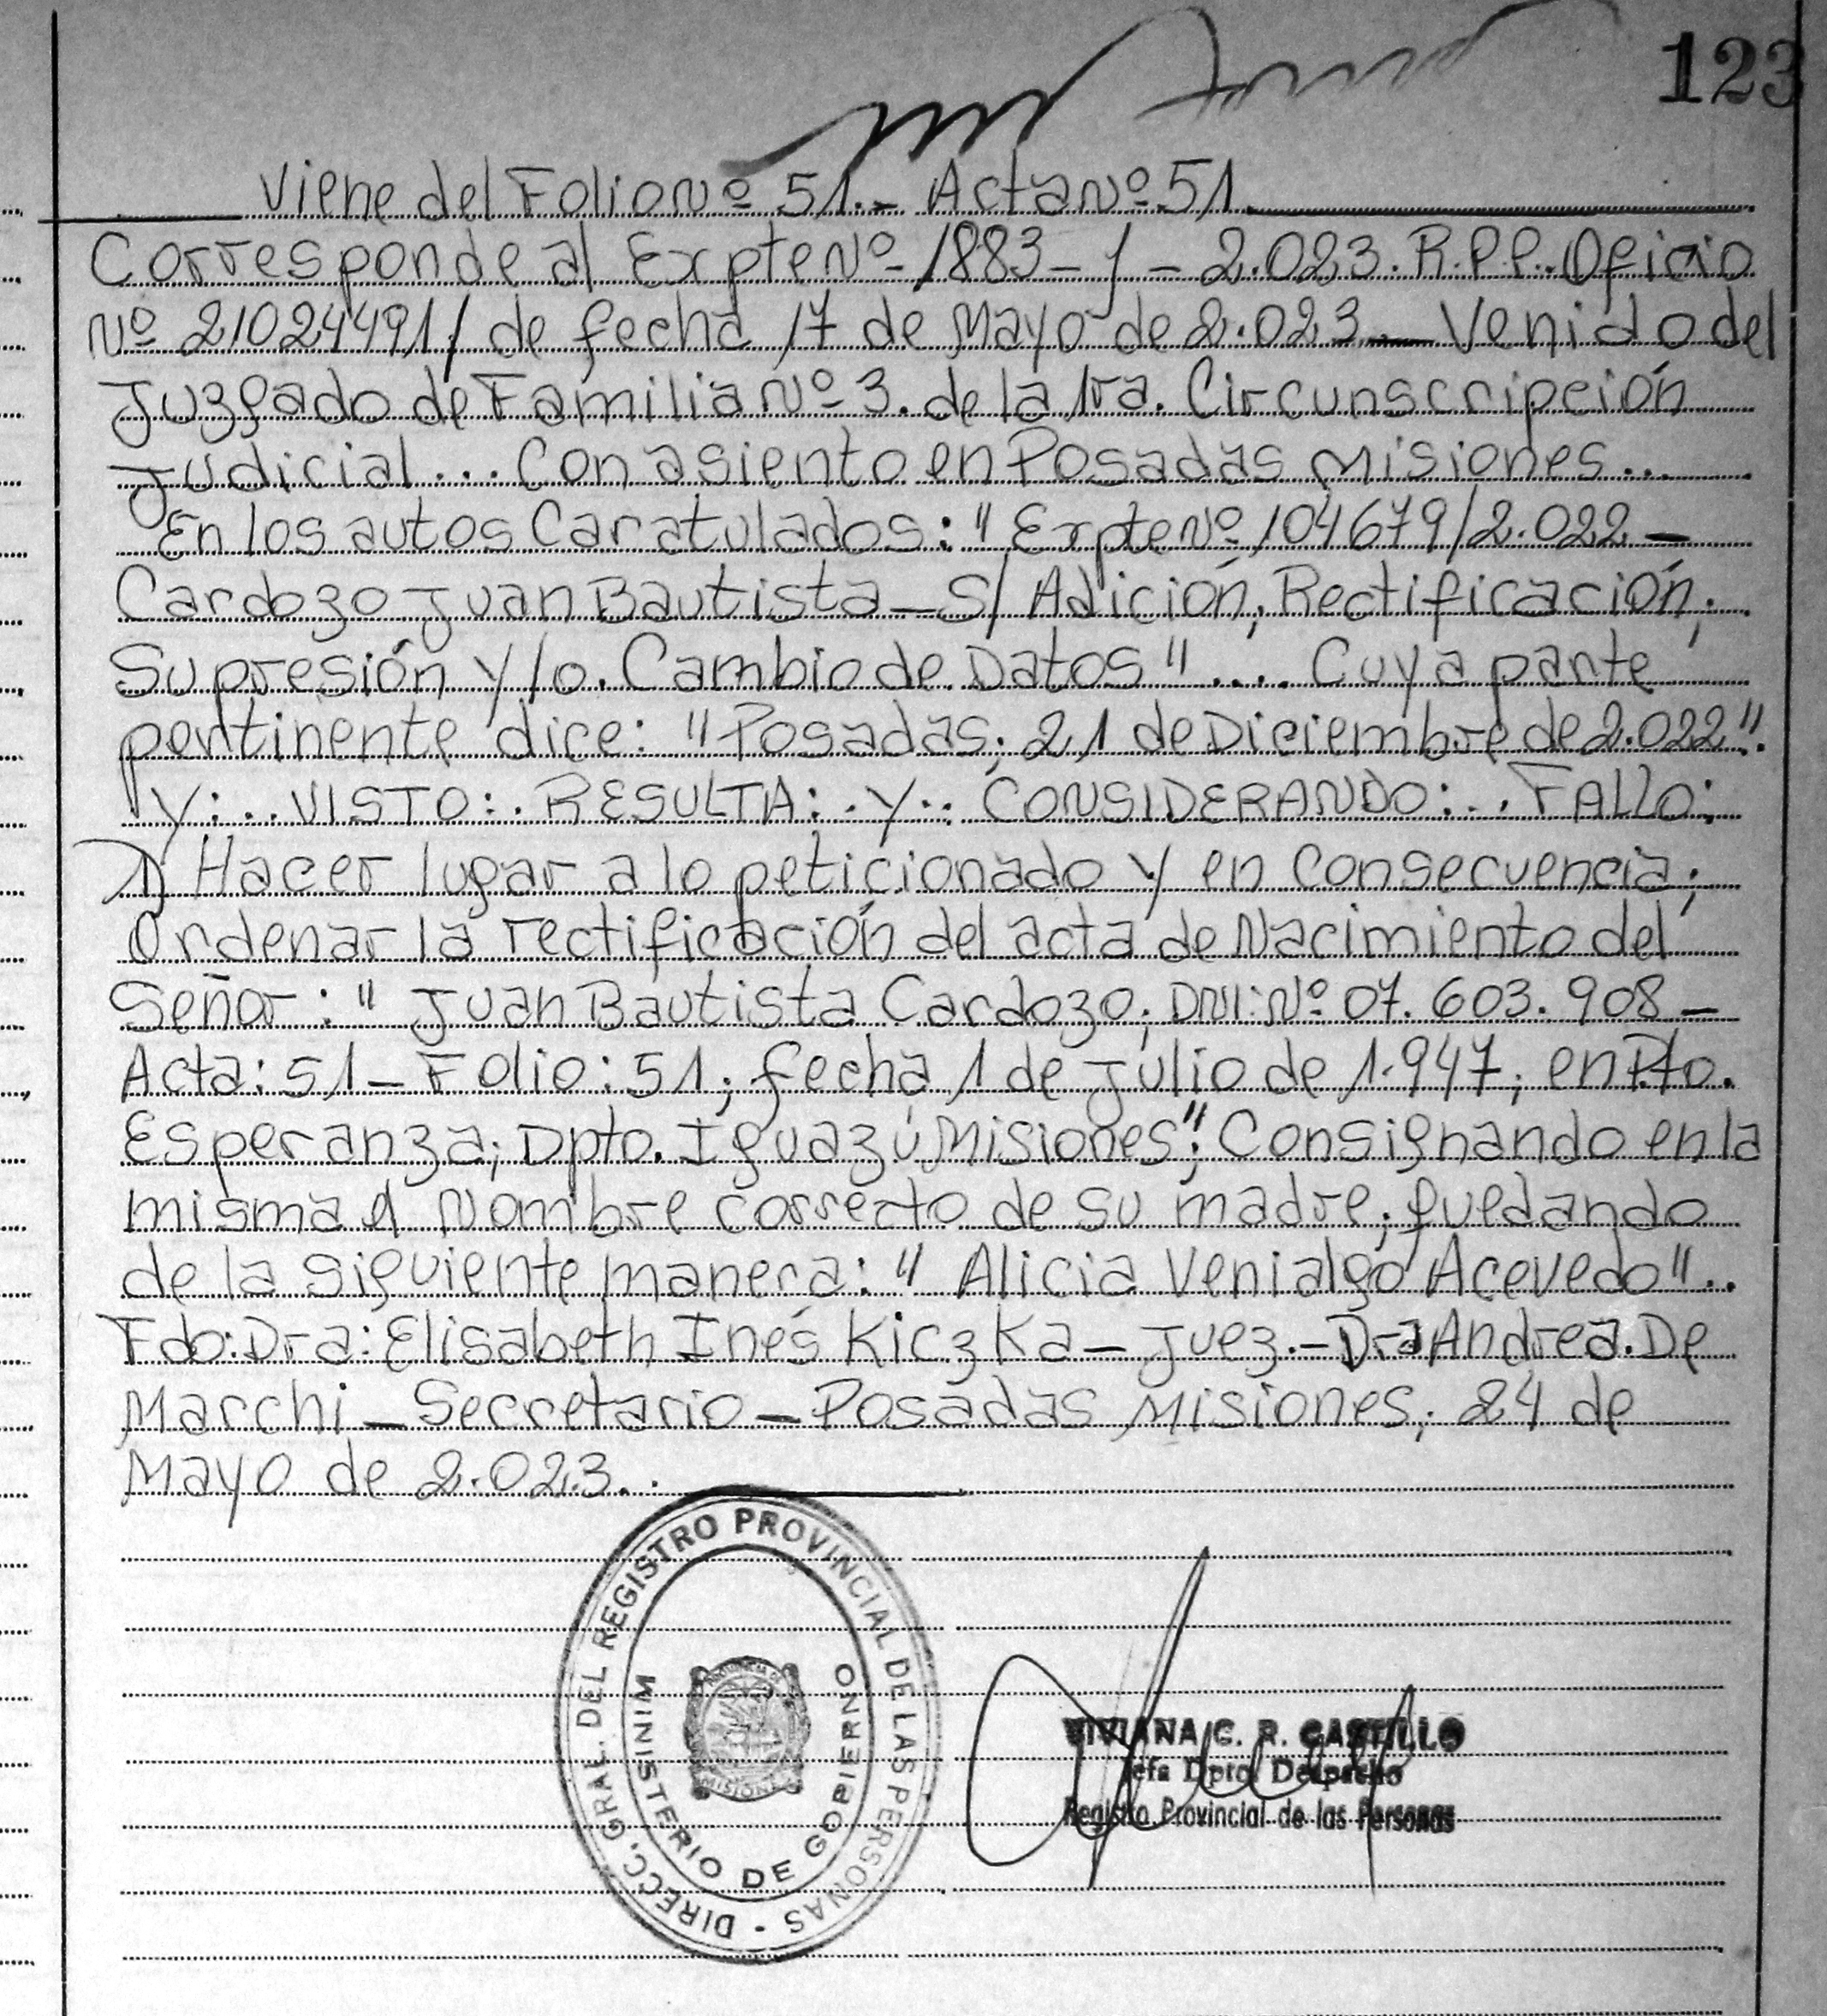 123
Viene del Folio Nº 51.- Acta Nº 51
Corresponde al Expte Nº 1883-y-2.023. R.P.P. Oficio
Nº 21024491/ de fecha 17 de Mayo de 2.023 — Venido del
Juzgado de Familia Nº 3. de la 1ra. Circunscripción
Judicial... Con asiento en Posadas Misiones...
En los autos Caratulados: "Expte Nº 104679/2.022 -
Cardozo Juan Bautista - S/ Adición; Rectificación;
Supresión y/o. Cambio de Datos".... Cuya parte
pertinente dice: "Posadas; 21 de Diciembre de 2.022".
Y:.. VISTO:. RESULTA:. Y.. CONSIDERANDO:.. FALLO:
1) Hacer lugar a lo peticionado y en consecuencia;
Ordenar la rectificación del acta de Nacimiento del
Señor: " Juan Bautista Cardozo; DNI: Nº 07.603.908 -
Acta: 51 - Folio: 51; fecha 1 de Julio de 1.947; en Pto.
Esperanza; Dpto. Iguazú Misiones"; Consignando en la
misma el Nombre correcto de su madre; quedando
de la siguiente manera: " Alicia Venialgo Acevedo"..
Fdo: Dra: Elisabeth Inés Kiczka - Juez.- Dra Andrea. De
Marchi - Secretario - Posadas Misiones; 24 de
Mayo de 2.023..
DIRECC. GRAL. DEL REGISTRO PROVINCIAL DE LAS PERSONAS -
MINISTERIO DE GOBIERNO
PROVINCIA DE
MISIONES
VIVIANA G. R. CASTILLO
Jefa Dpto Despacho
Registro Provincial de las Personas